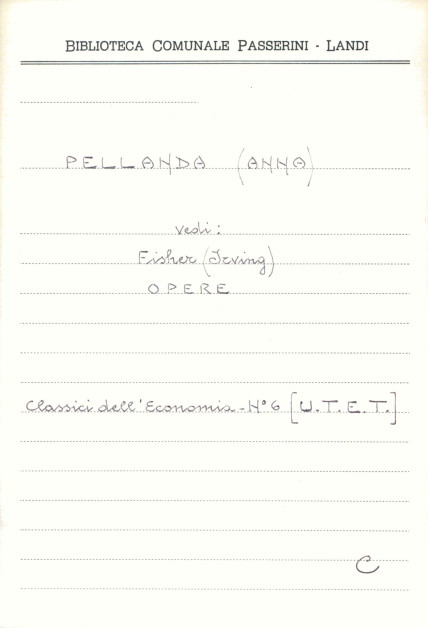 BIBLIOTECA COMUNALE PASSERINI - LANDI
PELLANDA (ANNA)
vedi:
Fisher (Irving)
OPERE
Classici dell'Economia - N° 6 [U.T.E.T.]
C